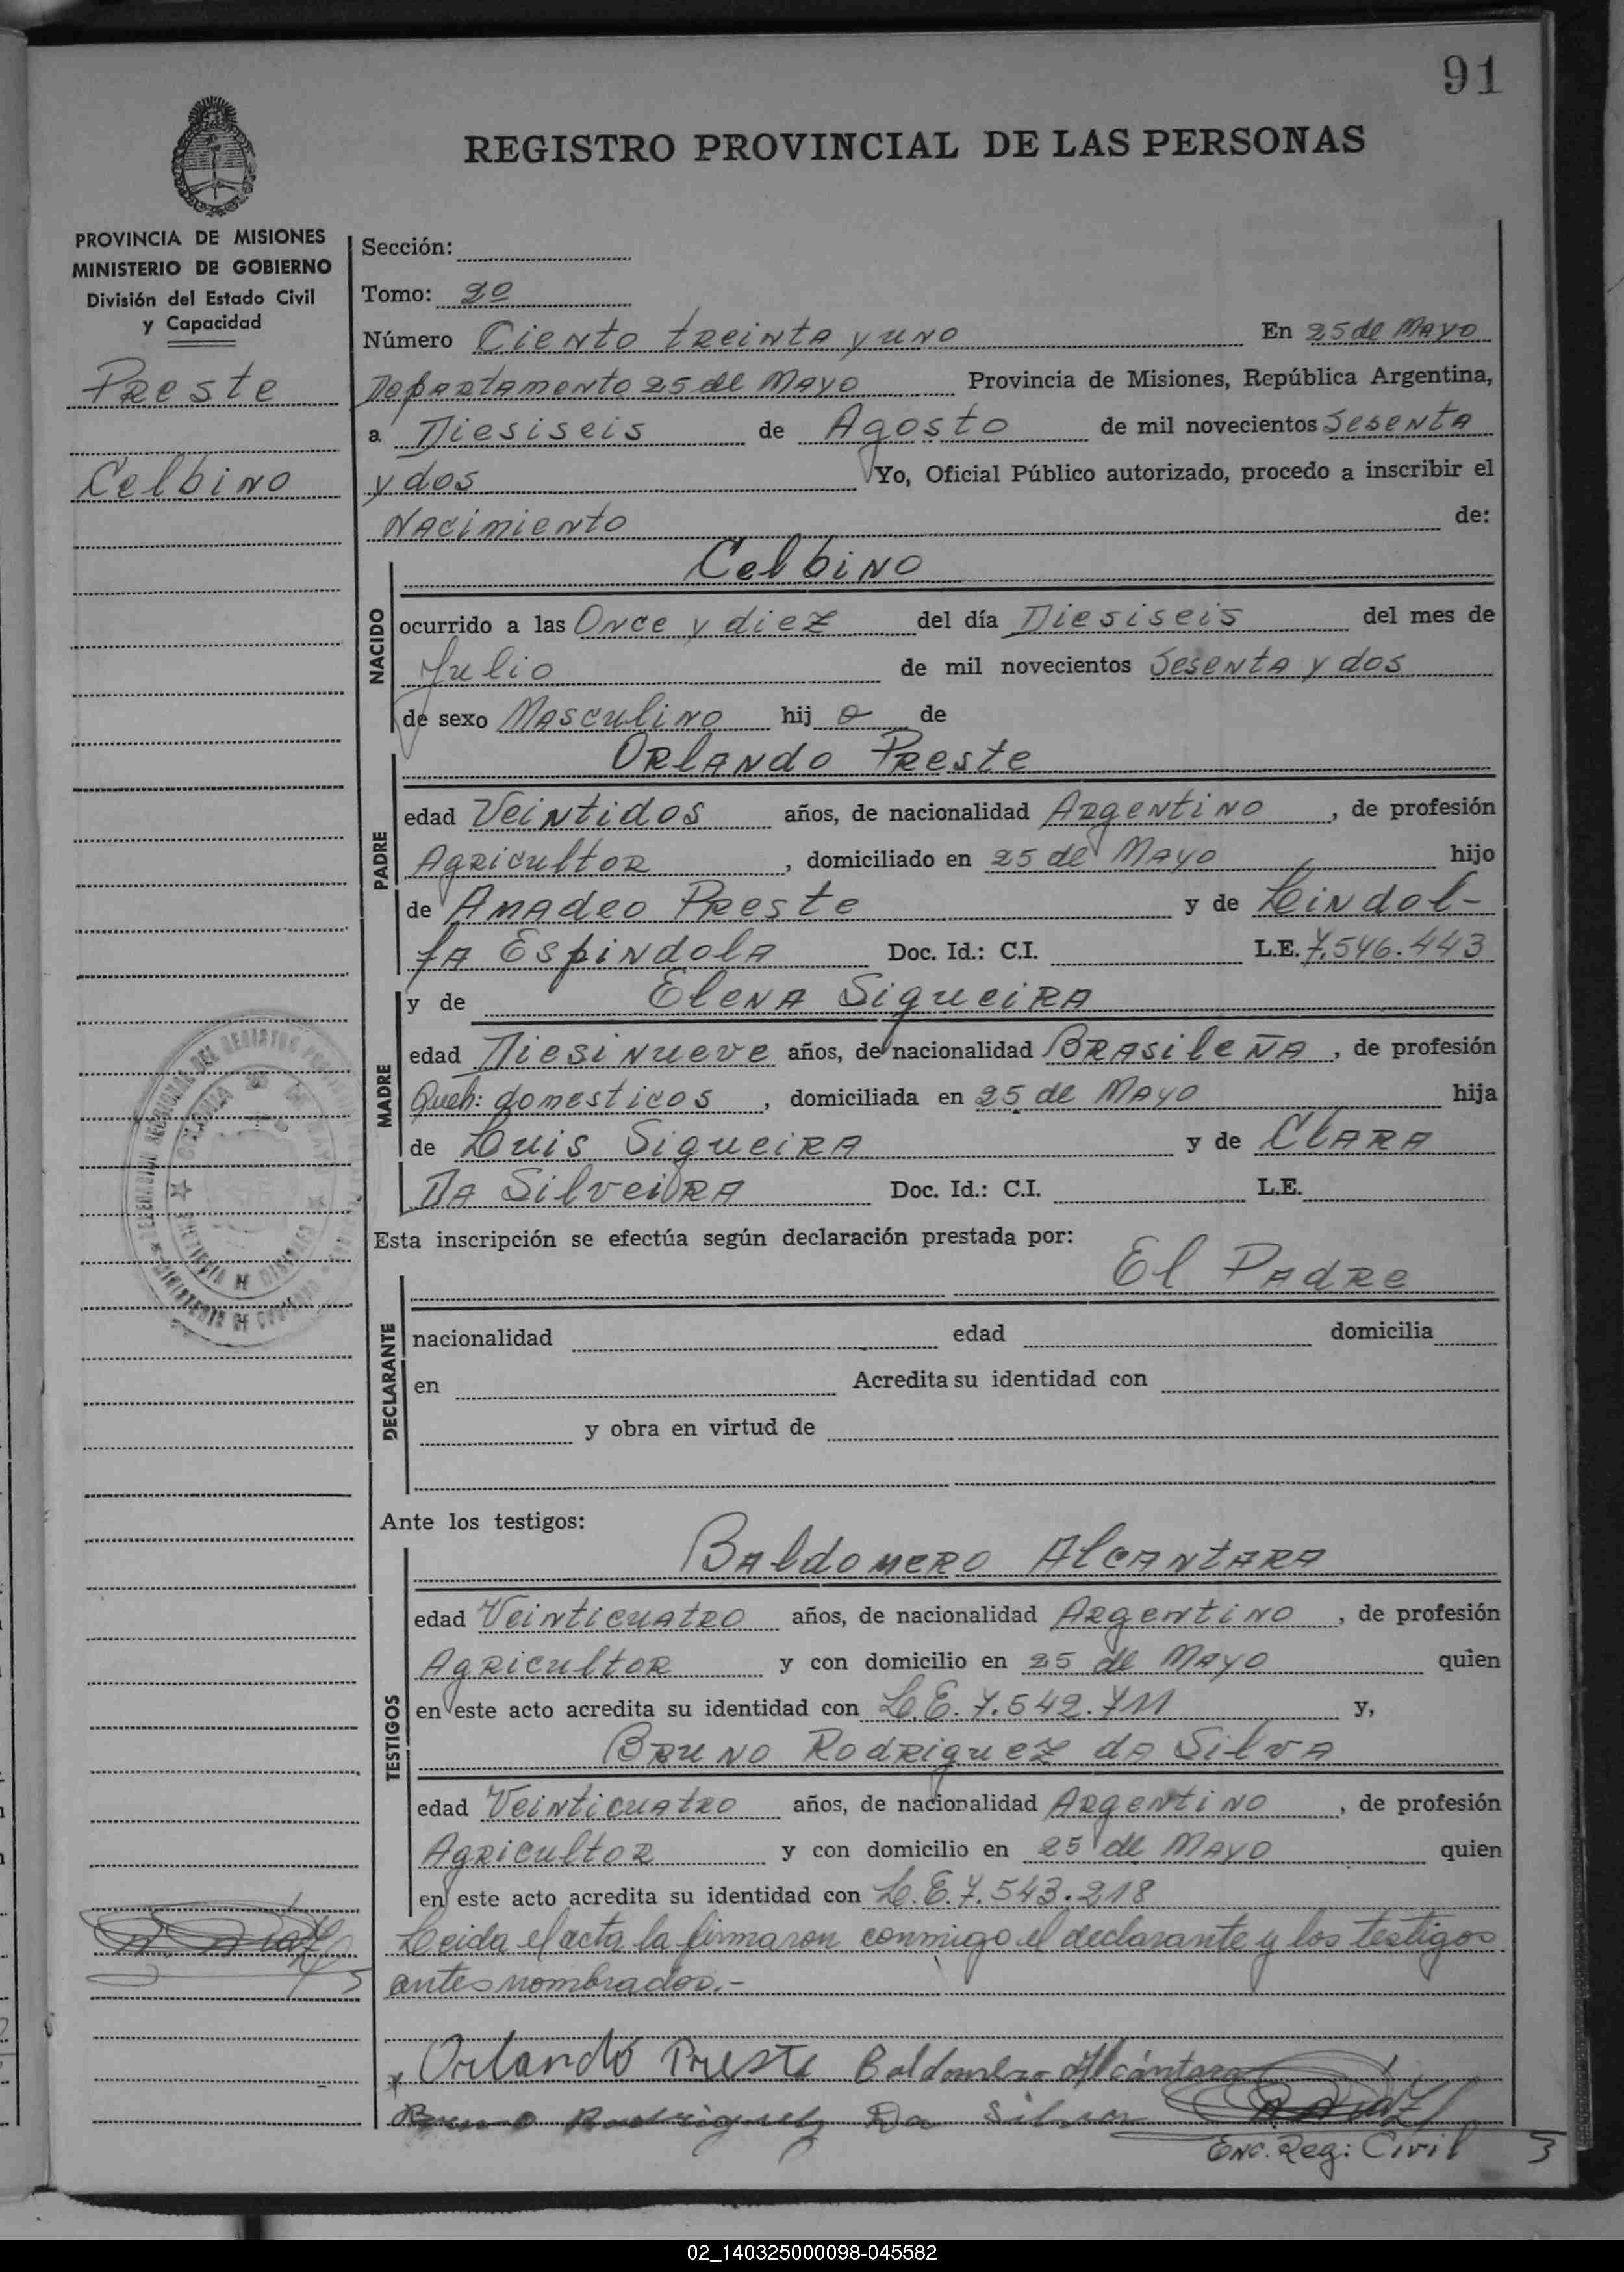 91
REGISTRO PROVINCIAL DE LAS PERSONAS
PROVINCIA DE MISIONES
MINISTERIO DE GOBIERNO
División del Estado Civil
y Capacidad
Preste
Celbino
Sección:
Tomo: 2º
Número Ciento treinta y uno En 25 de Mayo
Departamento 25 de Mayo Provincia de Misiones, República Argentina,
a Diesiseis de Agosto de mil novecientos Sesenta
y dos Yo, Oficial Público autorizado, procedo a inscribir el
Nacimiento de:
NACIDO
Celbino
ocurrido a las Once y diez del día Diesiseis del mes de
Julio de mil novecientos Sesenta y dos
de sexo Masculino hij o de
PADRE
Orlando Preste
edad Veintidos años, de nacionalidad Argentino, de profesión
Agricultor, domiciliado en 25 de Mayo hijo
de Amadeo Preste y de Lindol-
fa Espindola Doc. Id.: C.I. L.E. 7.546.443
MADRE
y de Elena Siqueira
edad Diesinueve años, de nacionalidad Brasileña, de profesión
Queh: domesticos, domiciliada en 25 de Mayo hija
de Luis Siqueira y de Clara
Da Silveira Doc. Id.: C.I. L.E.
Esta inscripción se efectúa según declaración prestada por:
El Padre
DECLARANTE
nacionalidad edad domicilia
en Acredita su identidad con
y obra en virtud de
Ante los testigos:
TESTIGOS
Baldomero Alcantara
edad Veinticuatro años, de nacionalidad Argentino, de profesión
Agricultor y con domicilio en 25 de Mayo quien
en este acto acredita su identidad con L.E. 7.542.711 y,
Bruno Rodriguez da Silva
edad Veinticuatro años, de nacionalidad Argentino, de profesión
Agricultor y con domicilio en 25 de Mayo quien
en este acto acredita su identidad con L.E. 7.543.218
Leida el acta la firmaron conmigo el declarante y los testigos
antes nombrados.-
Orlando Preste Baldomero Alcántara
Bruno Rodriguez Da Silva
Enc. Reg: Civil
02_140325000098-045582